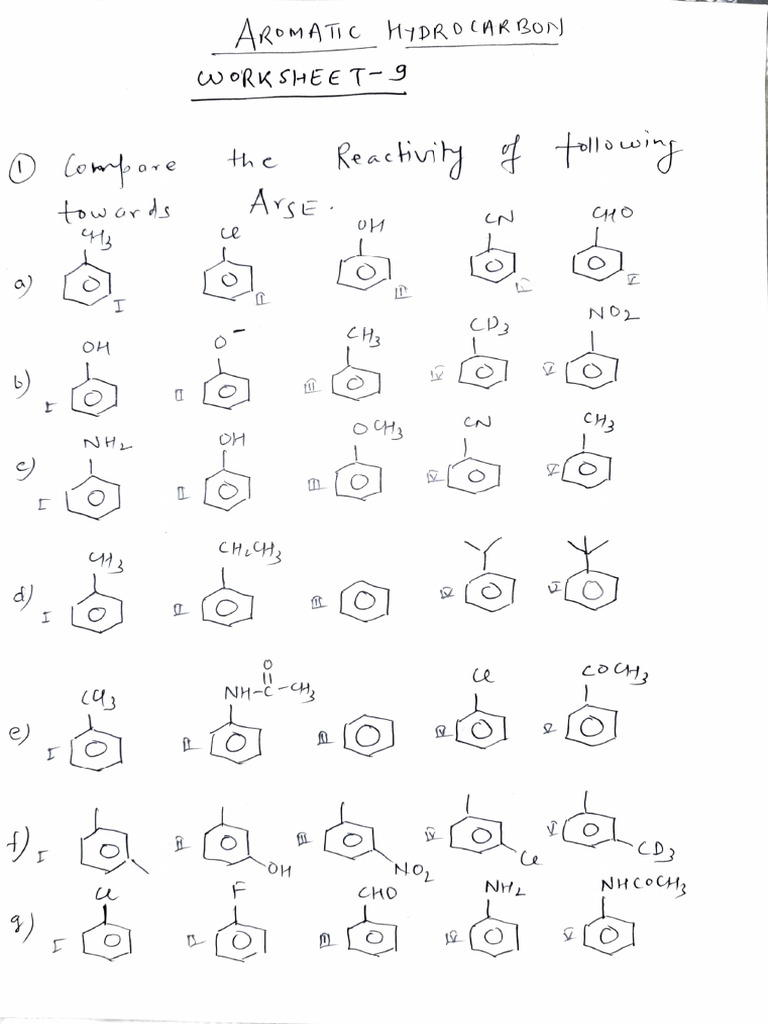 AROMATIC HYDROCARBON
WORKSHEET-9
① Compare the Reactivity of following
towards ArSE.
a) CH3 I Cl II OH III CN IV CHO V
b) I OH II O- III CH3 IV CD3 V NO2
c) I NH2 II OH III OCH3 IV CN V CH3
d) I CH3 II CH2CH3 III IV V
e) I CCl3 II NH-C-CH3 O III IV Cl V COCH3
f) I II OH III NO2 IV Cl V CD3
g) I Cl II F III CHO IV NH2 V NHCOCH3